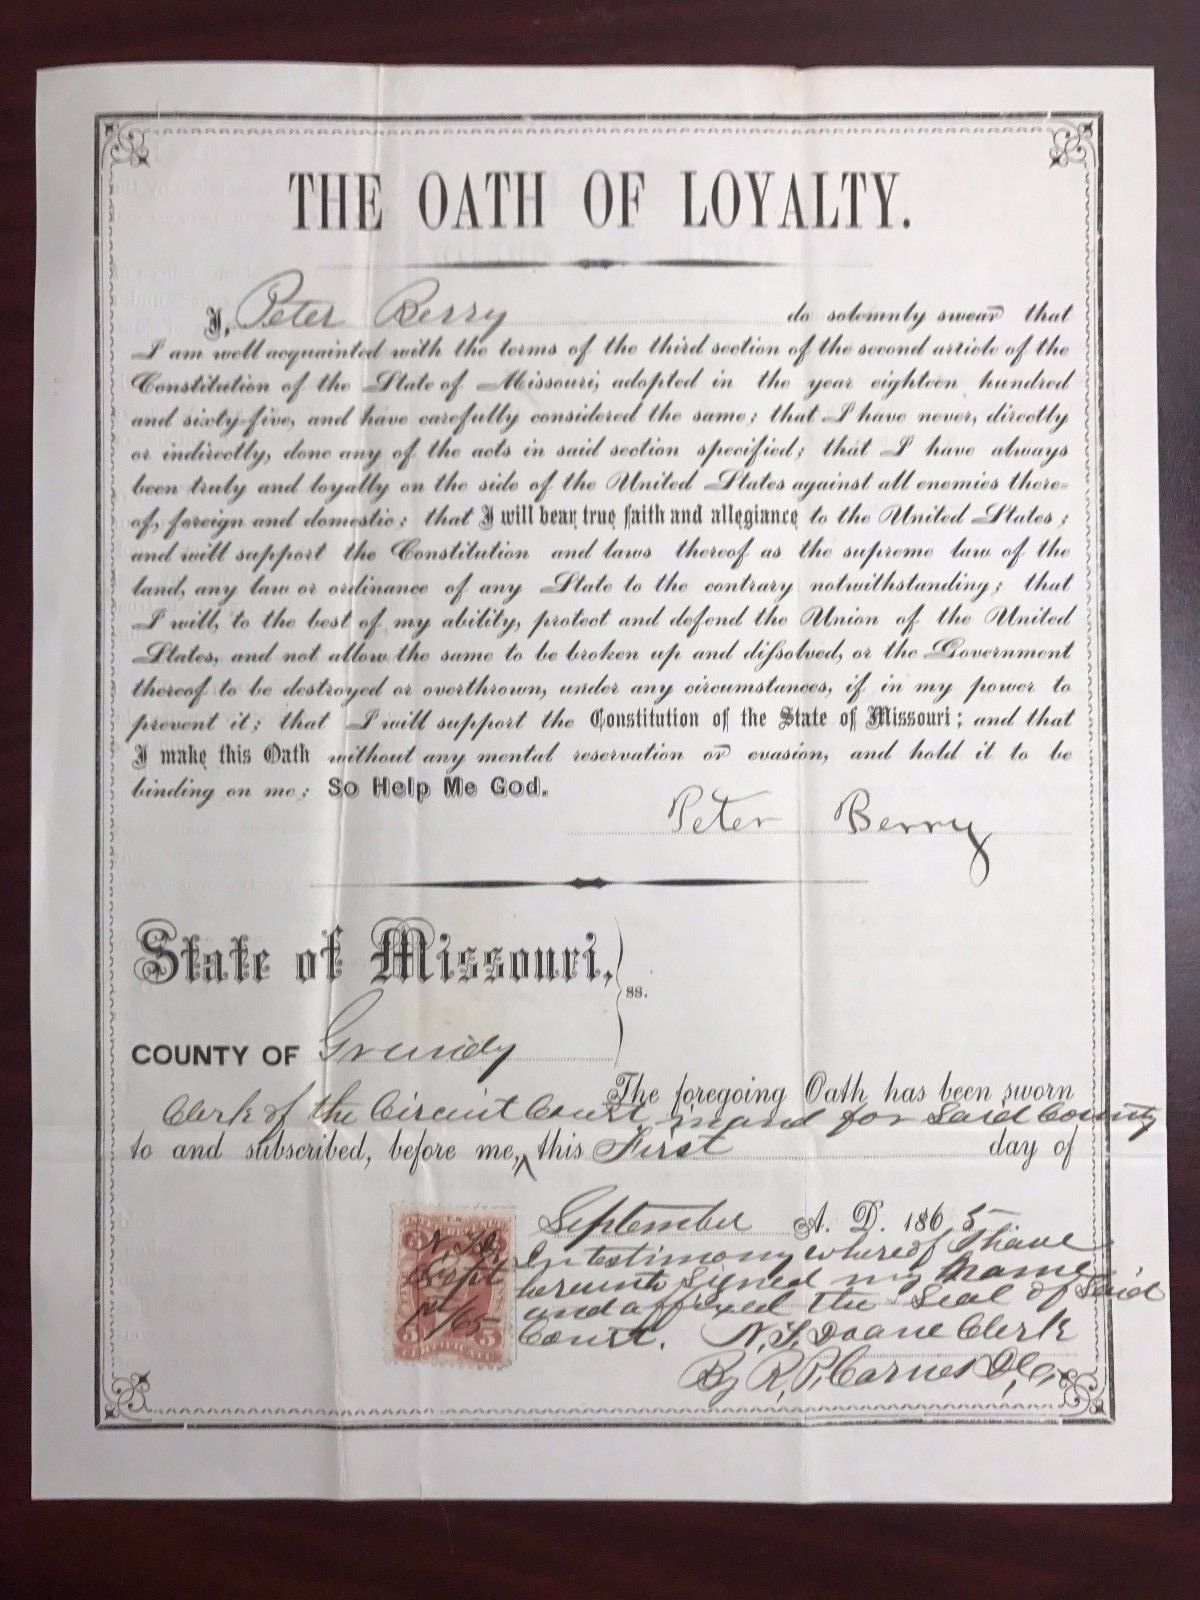 THE OATH OF LOYALTY.
I, Peter Berry do solemnly swear that
I am well acquainted with the terms of the third section of the second article of the
Constitution of the State of Missouri, adopted in the year eighteen hundred
and sixty-five, and have carefully considered the same; that I have never, directly
or indirectly, done any of the acts in said section specified; that I have always
been truly and loyally on the side of the United States against all enemies there-
of, foreign and domestic; that I will bear true faith and allegiance to the United States;
and will support the Constitution and laws thereof as the supreme law of the
land, any law or ordinance of any State to the contrary notwithstanding; that
I will, to the best of my ability, protect and defend the Union of the United
States, and not allow the same to be broken up and dissolved, or the Government
thereof to be destroyed or overthrown, under any circumstances, if in my power to
prevent it; that I will support the Constitution of the State of Missouri; and that
I make this Oath without any mental reservation or evasion, and hold it to be
binding on me: So Help Me God.
Peter Berry
State of Missouri,
ss.
COUNTY OF Grundy
The foregoing Oath has been sworn
Clerk of the Circuit Court in and for Said County
to and subscribed, before me, this First day of
September A. D. 1865
In testimony whereof I have
hereunto Signed my Name
and affixed the Seal of Said
Court. N. T. Doane Clerk
By R. P. Carnes D. C.
N. T. D.
Sept
1st /65
5 5
CERTIFICATE